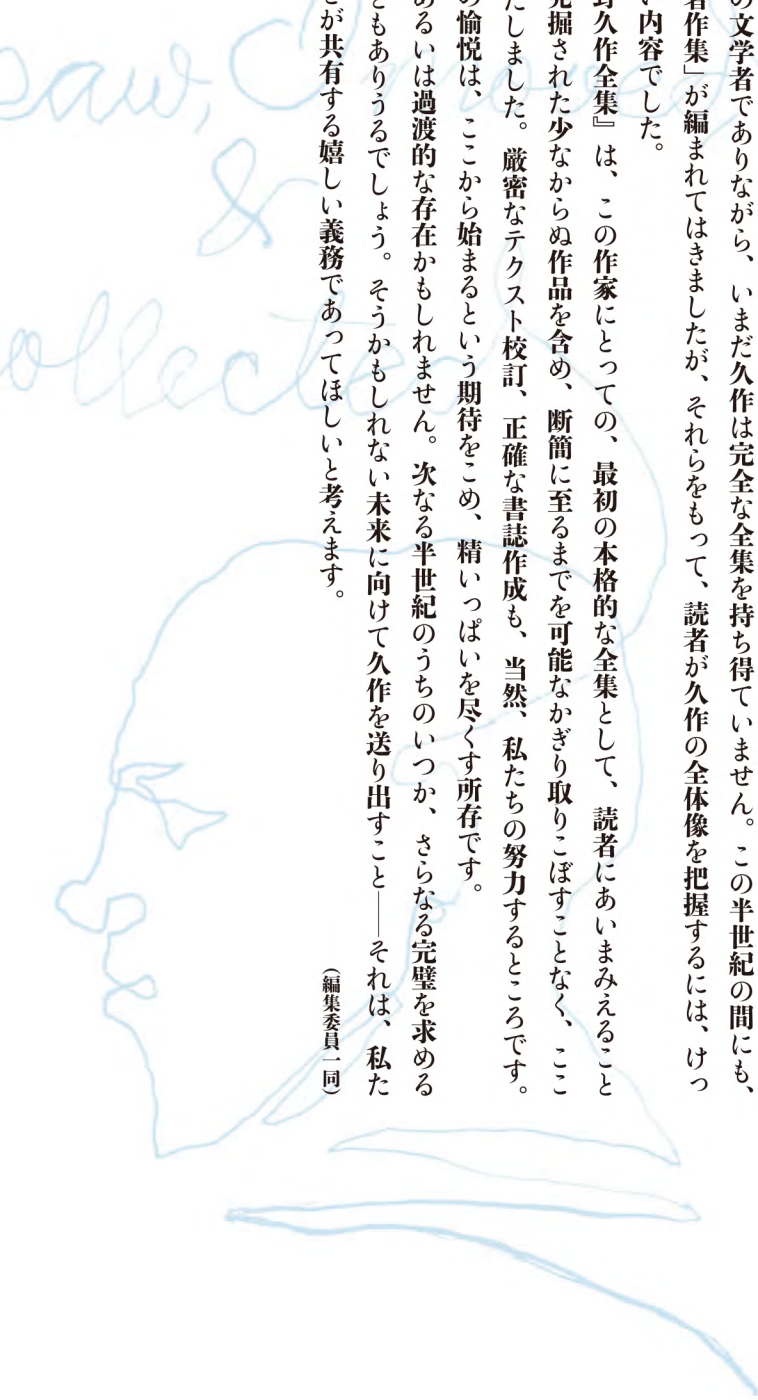 の文学者でありながら、いまだ久作は完全な全集を持ち得ていません。この半世紀の間にも、
著作集」が編まれてはきましたが、それらをもって、読者が久作の全体像を把握するには、けっ
い内容でした。
野久作全集』は、この作家にとっての、最初の本格的な全集として、読者にあいまみえること
発掘された少なからぬ作品を含め、断簡に至るまでを可能なかぎり取りこぼすことなく、ここ
たしました。厳密なテクスト校訂、正確な書誌作成も、当然、私たちの努力するところです。
の愉悦は、ここから始まるという期待をこめ、精いっぱいを尽くす所存です。
あるいは過渡的な存在かもしれません。次なる半世紀のうちのいつか、さらなる完璧を求める
ともありうるでしょう。そうかもしれない未来に向けて久作を送り出すこと――それは、私た
が共有する嬉しい義務であってほしいと考えます。
（編集委員一同）
saw,
&
ollected